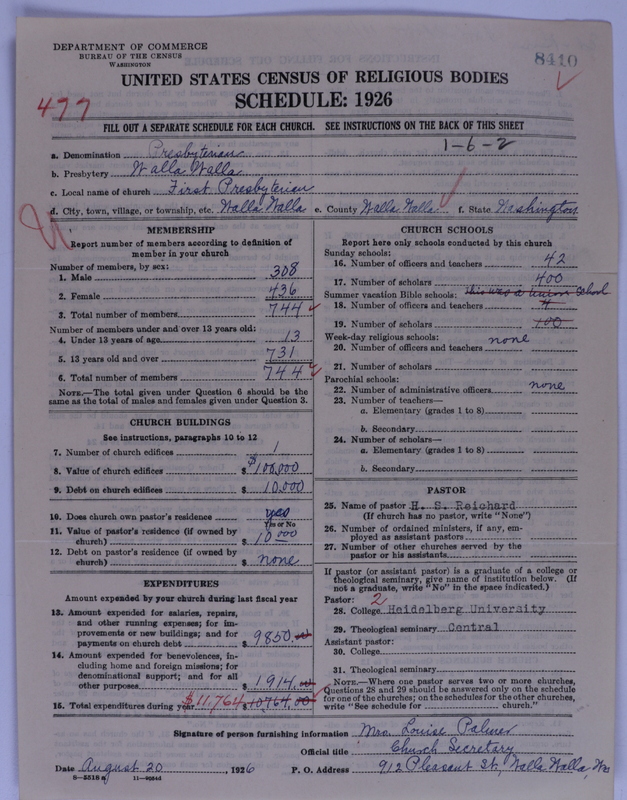 DEPARTMENT OF COMMERCE
BUREAU OF THE CENSUS
WASHINGTON
8410
UNITED STATES CENSUS OF RELIGIOUS BODIES
SCHEDULE: 1926
477
FILL OUT A SEPARATE SCHEDULE FOR EACH CHURCH. SEE INSTRUCTIONS ON THE BACK OF THIS SHEET
1-6-2
a. Denomination Presbyterian
b. Presbytery Walla Walla
c. Local name of church First Presbyterian
d. City, town, village, or township, etc. Walla Walla e. County Walla Walla f. State Washington
MEMBERSHIP
Report number of members according to definition of
member in your church
Number of members, by sex:
1. Male 308
2. Female 436
3. Total number of members 744
Number of members under and over 13 years old:
4. Under 13 years of age 13
5. 13 years old and over 731
6. Total number of members 744
NOTE.—The total given under Question 6 should be
same as the total of males and females given under Question 3.
CHURCH BUILDINGS
See instructions, paragraphs 10 to 12
7. Number of church edifices 1
8. Value of church edifices $ $100,000
9. Debt on church edifices $ 10,000
10. Does church own pastor's residence yes
Yes or No
11. Value of pastor's residence (if owned by
church) $ 10,000
12. Debt on pastor's residence (if owned by
church) $ none
EXPENDITURES
Amount expended by your church during last fiscal year
13. Amount expended for salaries, repairs,
and other running expenses; for im-
provements or new buildings; and for
payments on church debt $ 9850.00
14. Amount expended for benevolences, in-
cluding home and foreign missions; for
denominational support; and for all
other purposes $ 1914.00
15. Total expenditures during year $11,764 $ 10764.00
CHURCH SCHOOLS
Report here only schools conducted by this church
Sunday schools:
16. Number of officers and teachers 42
17. Number of scholars 400
Summer vacation Bible schools: This was a union School
18. Number of officers and teachers 4
19. Number of scholars 100
Week-day religious schools:
20. Number of officers and teachers none
21. Number of scholars
Parochial schools:
22. Number of administrative officers none
23. Number of teachers—
a. Elementary (grades 1 to 8)
b. Secondary
24. Number of scholars—
a. Elementary (grades 1 to 8)
b. Secondary
PASTOR
25. Name of pastor H. S. Reichard
(If church has no pastor, write "None")
26. Number of ordained ministers, if any, em-
ployed as assistant pastors
27. Number of other churches served by the
pastor or his assistants
If pastor (or assistant pastor) is a graduate of a college or
theological seminary, give name of institution below. (If
not a graduate, write "No" in the space indicated.)
Pastor: 2
28. College Heidelberg University
29. Theological seminary Central
Assistant pastor:
30. College
31. Theological seminary
NOTE.—Where one pastor serves two or more churches,
Questions 28 and 29 should be answered only on the schedule
for one of the churches; on the schedules for the other churches,
write "See schedule for church."
Signature of person furnishing information Mrs. Louise Palmer
Official title Church Secretary
Date August 20, 1926 P. O. Address 912 Pleasant St, Walla Walla, Wn
8-5518 a 11-9054d